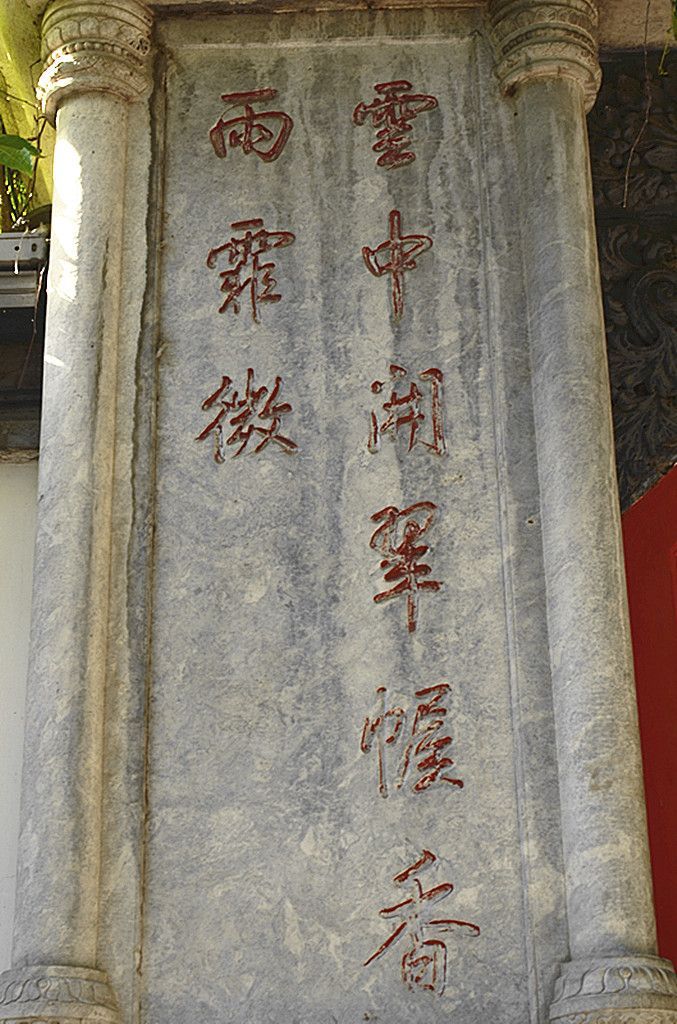 雲中開翠幄香
雨霏微